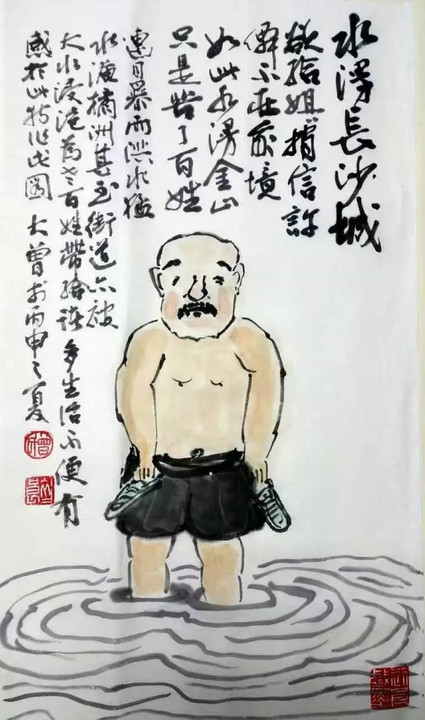 水漫長沙城
欲给姐捎信許
不在境
如此水漫金山
只是苦了百姓
連月暴雨洪水猛
水漫橘洲甚至街道亦被
大水浸淹為老百姓帶給諸多生活不便有
感於此特作此圖 大曾於丙申之夏